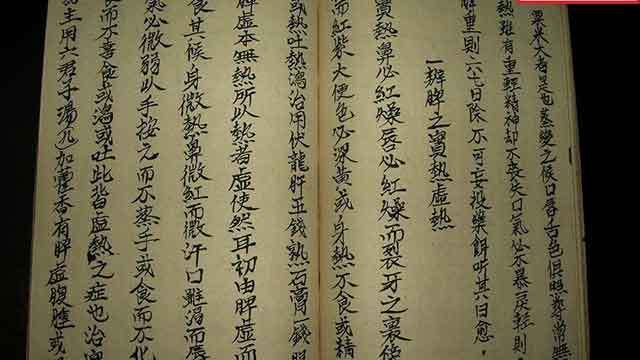 粟米大者是也蒸變之候口唇舌色俱照尋常
熱雖有重輕精神却不喪失口氣必不暴戾輕則
重則六七日除不可妄投藥餌听其日愈
一辨脾之實熱虛熱
實熱鼻必紅燥唇必紅燥而裂牙之裏
而紅紫大便色必深黄或身熱不食或精
或熱吐熱瀉治用伏龍肝五錢熟石膏一錢
脾虛本無熱所以熱者虛使然耳初由脾虛而
食其候身微熱鼻微紅而微汗口雖渴而唇
氣必微弱以手按之而不蒸手或食而不化
而不喜食或瀉或吐此皆虛熱之症也治
主用六君子湯加藿香有脾虛腹脹或